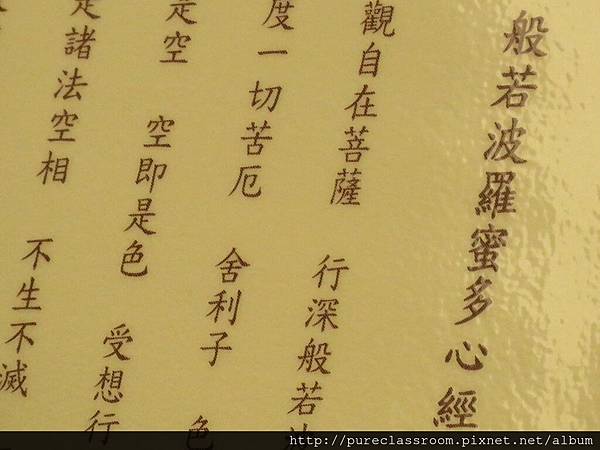 般若波羅蜜多心經
觀自在菩薩 行深般若
度一切苦厄 舍利子 色
是空 空即是色 受想行
是諸法空相 不生不滅
http://pureclassroom.pixnet.net/album